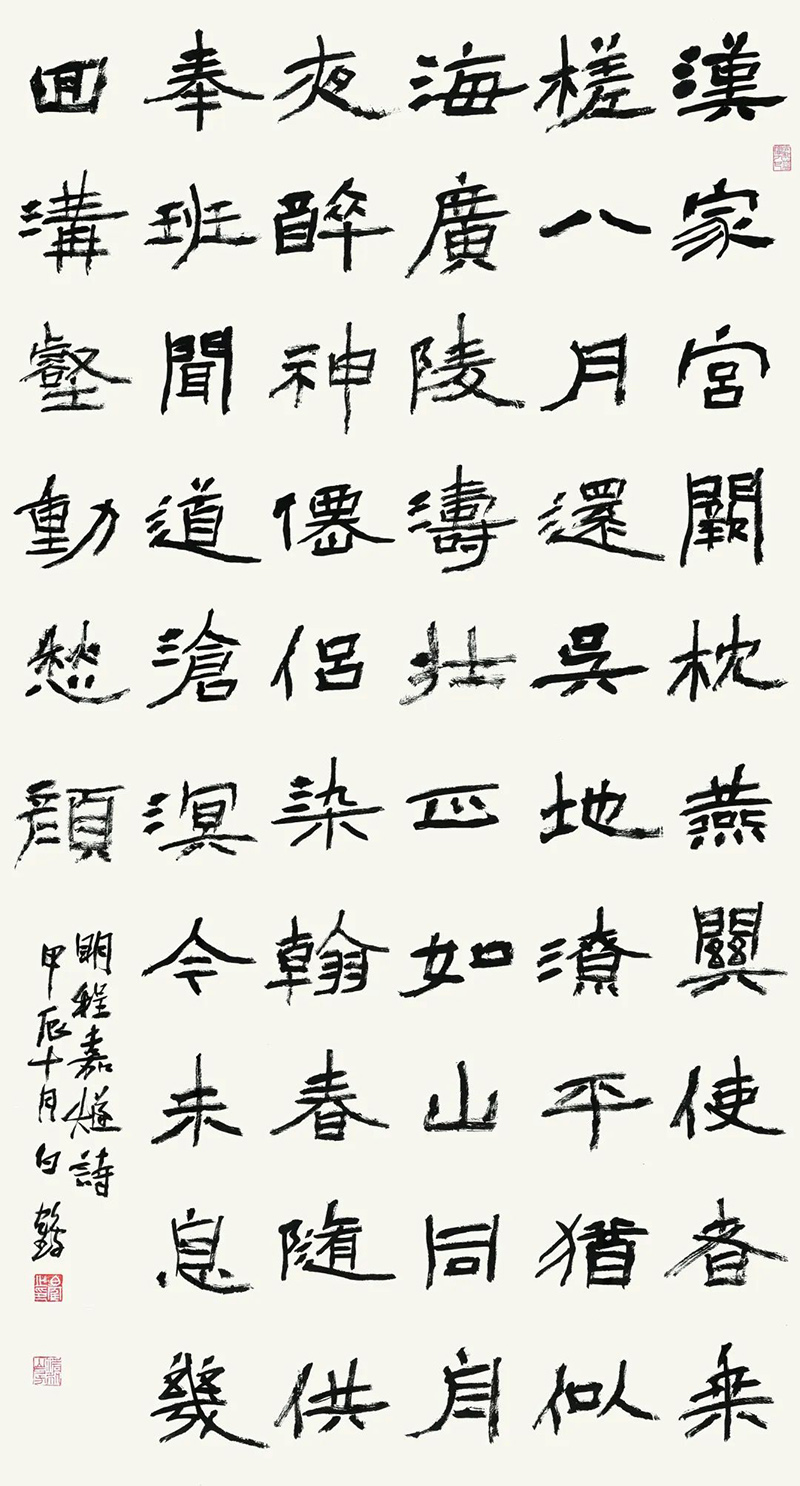 漢家宮闕枕燕關使者乘
槎八月還吳地潦平猶似
海廣陵濤壯正如山同舟
夜醉神僊侶染翰春隨供
奉班聞道滄溟今未息幾
回溝壑動愁顏
明程嘉燧詩
甲辰十月白鶴